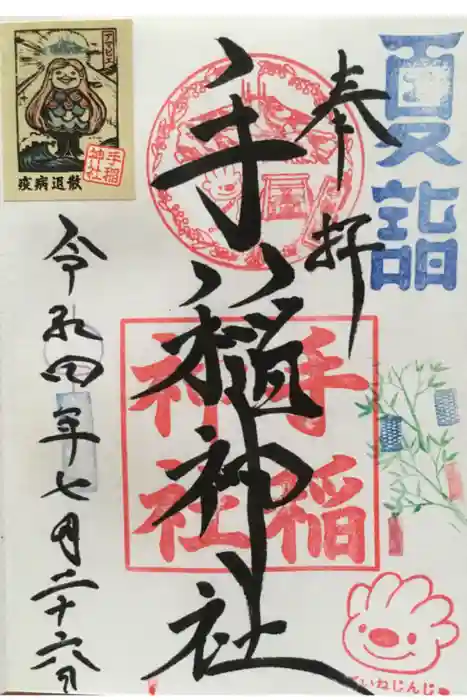 夏詣
奉拝
手稲神社
手稲
神社
令和四年七月二十六日
アマビエ
手稲
神社
疫病退散
ていねじんじゃ